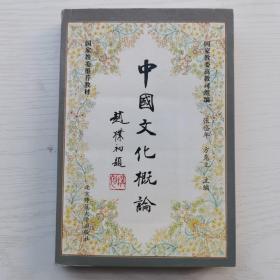 国家教委高教司组编
张岱年 方克立 主编
中國文化概論
趙樸初題
国家教委推荐教材
北京师范大学出版社